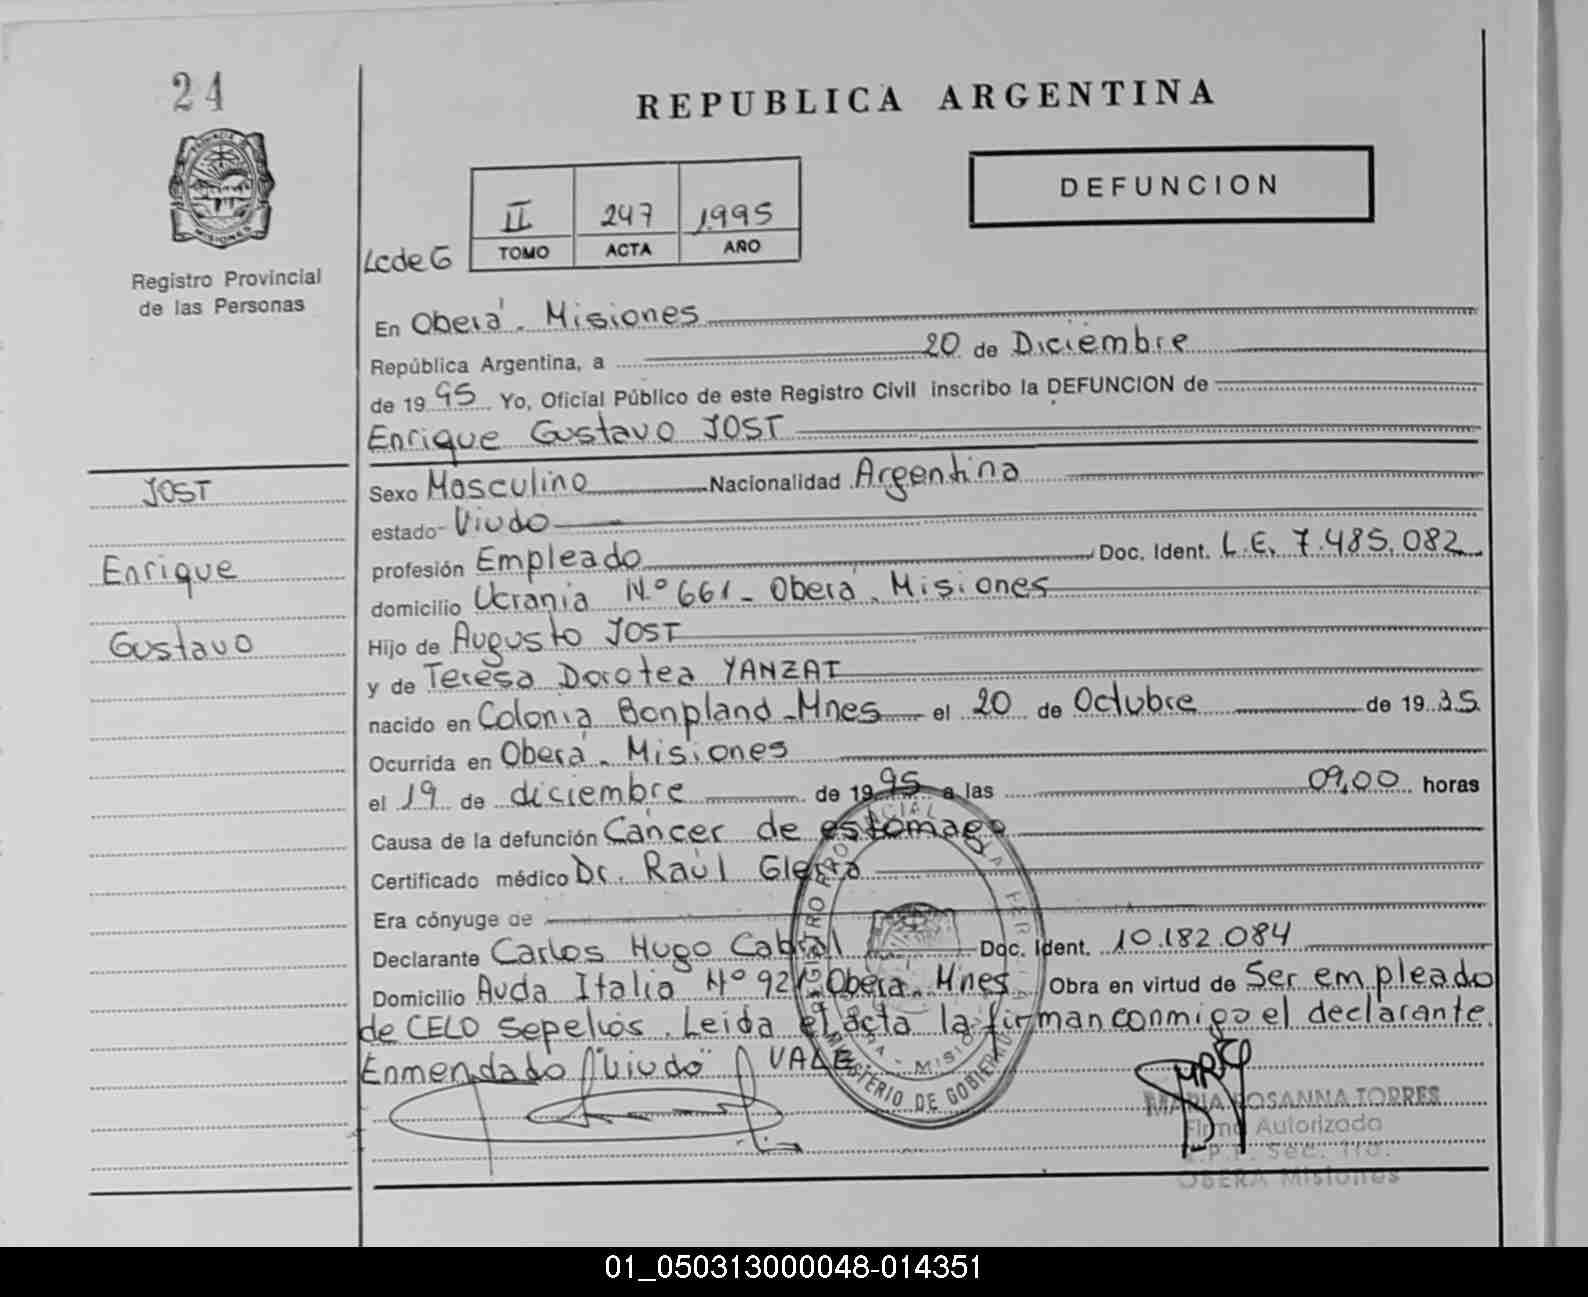 24
REPUBLICA ARGENTINA
DEFUNCION
II 247 1995
TOMO ACTA AÑO
MISIONES
Registro Provincial
de las Personas
En Oberá. Misiones
República Argentina, a 20 de Diciembre
de 1995 Yo, Oficial Público de este Registro Civil inscribo la DEFUNCION de
Enrique Gustavo JOST
JOST
Enrique
Gustavo
Sexo Masculino Nacionalidad Argentina
estado Viudo
profesión Empleado Doc. Ident. L.E. 7.485.082
domicilio Ucrania N.º 661 - Oberá. Misiones
Hijo de Augusto JOST
y de Teresa Dorotea YANZAT
nacido en Colonia Bonpland - Mnes el 20 de Octubre de 1935
Ocurrida en Oberá. Misiones
el 19 de diciembre de 1995 a las 09,00 horas
Causa de la defunción Cáncer de estómago
Certificado médico Dr. Raúl
Era cónyuge de
Declarante Carlos Hugo Cabral Doc. Ident. 10.182.084
Domicilio Avda Italia Nº 921 Oberá. Mnes Obra en virtud de Ser empleado
de CELO Sepelios. Leida el acta la firman conmigo el declarante.
Enmendado "Viudo" VALE
MINISTERIO DE GOBIERNO
MARIA ROSANNA TORRES
Firma Autorizada
OBERA Misiones
01_050313000048-014351